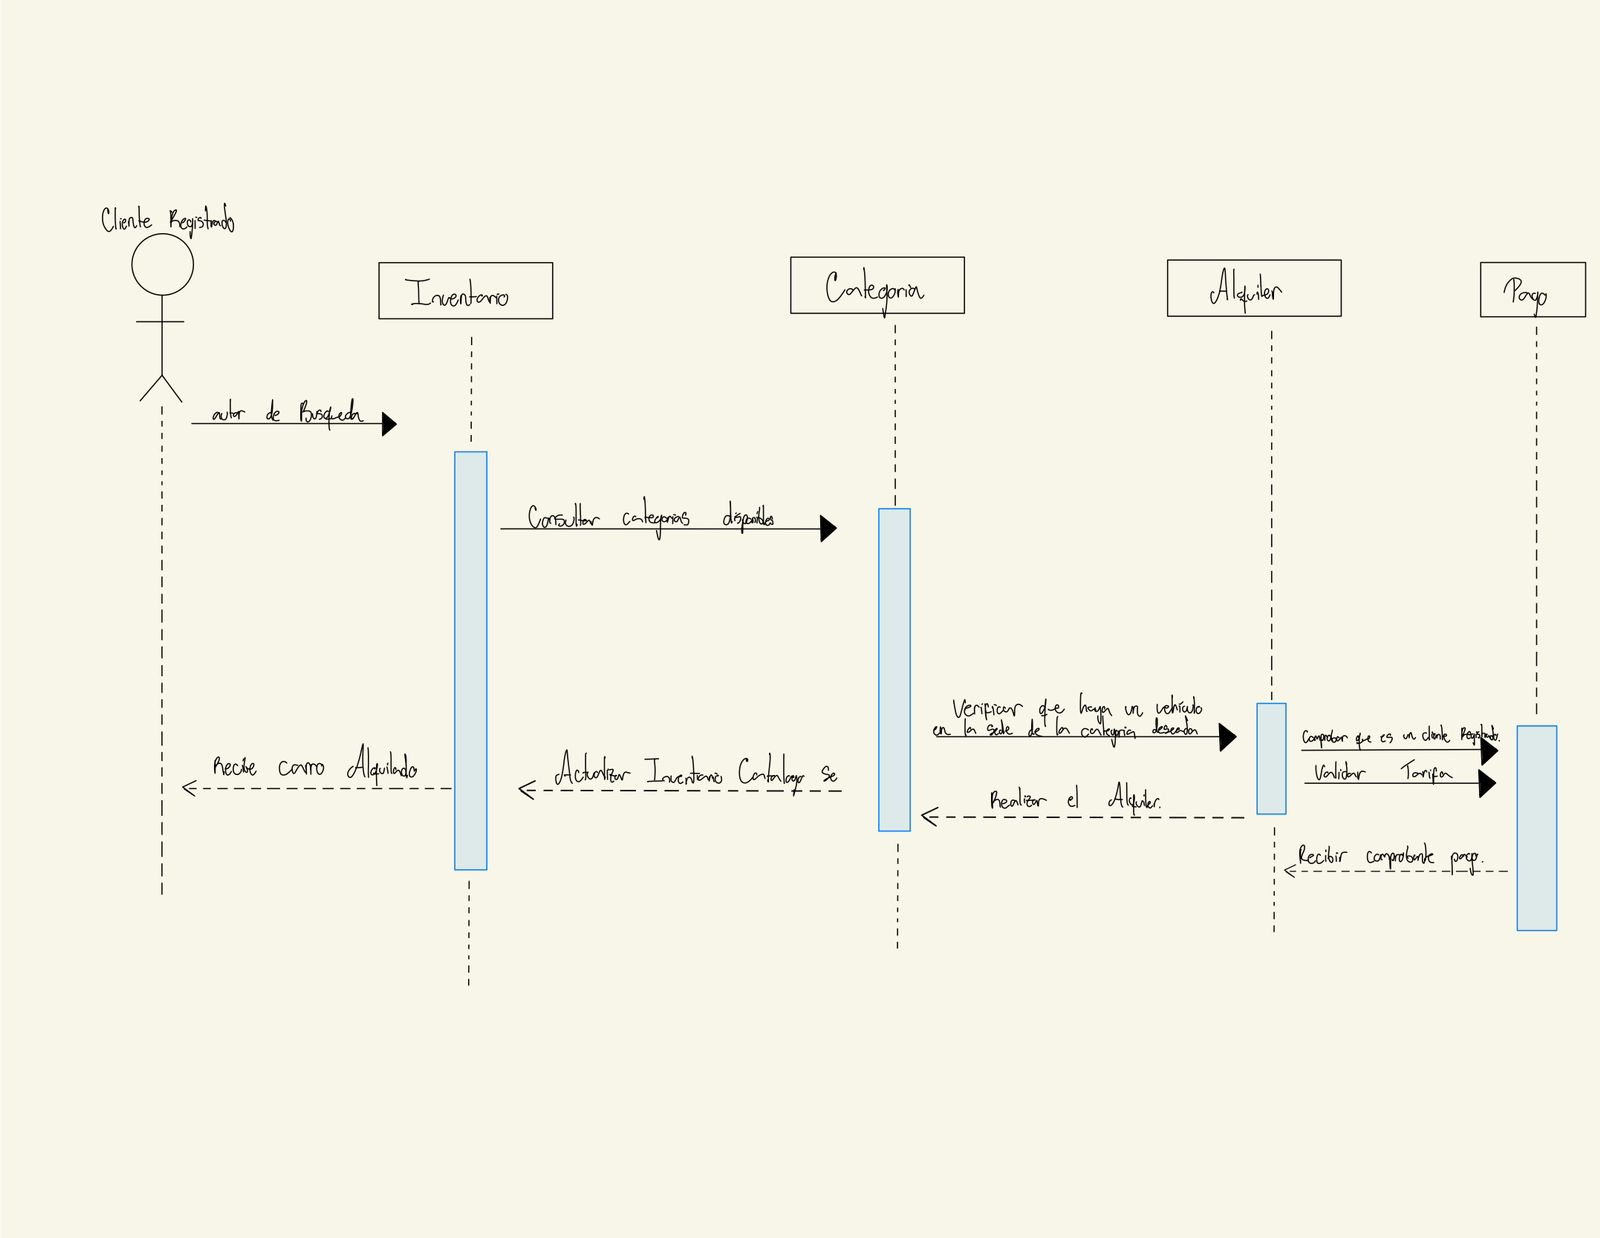 Cliente Registrado
Inventario
Categoria
Alquiler
Pago
autor de Busqueda
Consultar categorias disponibles
Verificar que haya un vehiculo
en la sede de la categoria deseada
Comprobar que es un cliente Registrado.
Validar Tarifa
Recibe carro Alquilado
Actualizar Inventario Catalogo se
Realizar el Alquiler.
Recibir comprobante pago.